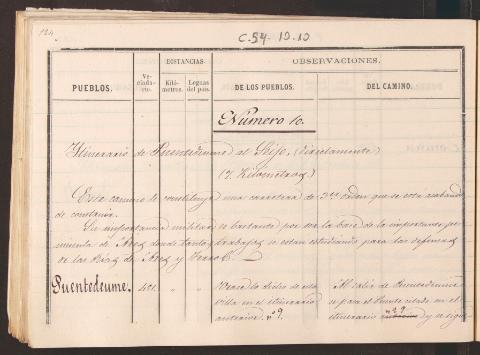 124
C.54-10-10
PUEBLOS.
Vecindario.
DISTANCIAS
Kilómetros.
Leguas del país.
OBSERVACIONES.
DE LOS PUEBLOS.
DEL CAMINO.
Número 10.
Itinerario de Puentedeume al Seijo, (directamente)
(7 Kilómetros)
Este camino le constituye una carretera de 3er orden que se está acabando
de construir.
Su importancia militar es bastante por ser la base de la importante pe-
nínsula de Ares donde tantos trabajos se están estudiando para las defensas
de las Rías de Ares y Ferrol.
Puentedeume.
Véase lo dicho de esta
villa en el itinerario
anterior. nº 9.
Al salir de Puentedeume
se pasa el Puente citado en el
itinerario nº 9 y se sigue